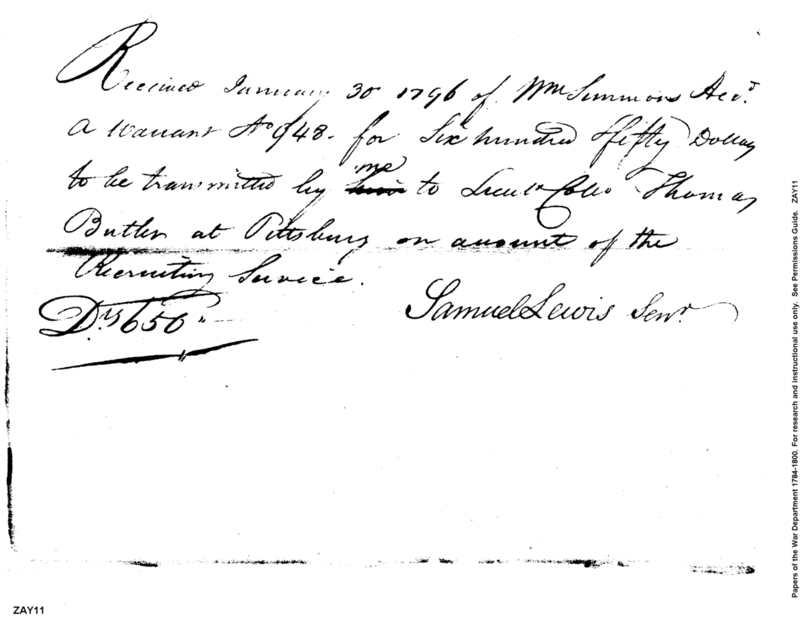 Received January 30 1796 of Wm Simmons Acct.
a Warrant No 948. for Six hundred & fifty Dollars
to be transmitted by me to Lieut. Collo Thomas
Butler at Pittsburg on account of the
Recruiting Service.
Drs 650"
Samuel Lewis Senr.
Papers of the War Department 1784-1800. For research and instructional use only. See Permissions Guide. ZAY11
ZAY11